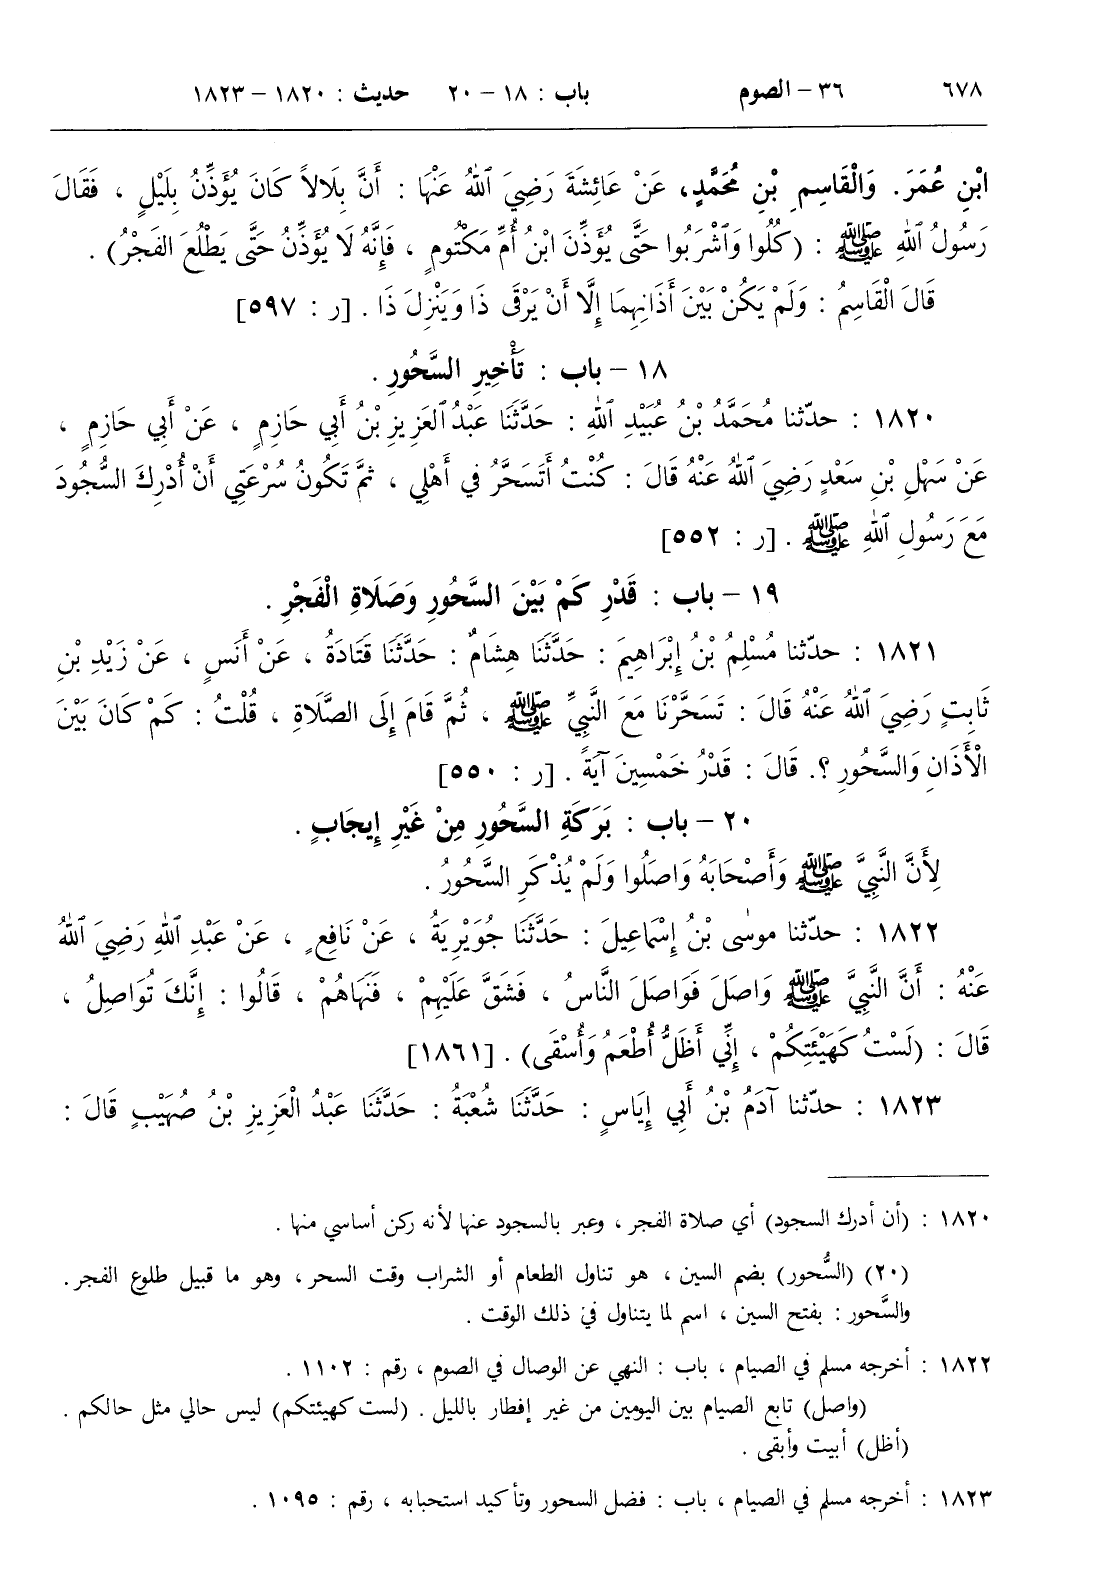 ٦٧٨ ٣٦ – الصوم باب : ١٨ – ٢٠ حديث : ١٨٢٠ – ١٨٢٣
ابْنِ عُمَرَ. وَالْقَاسِمِ بْنِ مُحَمَّدٍ، عَنْ عَائِشَةَ رَضِيَ ٱللهُ عَنْهَا : أَنَّ بِلَالاً كَانَ يُؤَذِّنُ بِلَيْلٍ ، فَقَالَ
رَسُولُ ٱللهِ ﷺ : (كُلُوا وَٱشْرَبُوا حَتَّى يُؤَذِّنَ ابْنُ أُمِّ مَكْتُومٍ ، فَإِنَّهُ لَا يُؤَذِّنُ حَتَّى يَطْلُعَ الفَجْرُ) .
قَالَ الْقَاسِمُ : وَلَمْ يَكُنْ بَيْنَ أَذَانِهِمَا إِلَّا أَنْ يَرْقَى ذَا وَيَنْزِلَ ذَا . [ر : ٥٩٧]
١٨ – باب : تَأْخِيرِ السَّحُورِ .
١٨٢٠ : حدّثنا مُحَمَّدُ بْنُ عُبَيْدِ ٱللهِ : حَدَّثَنَا عَبْدُ ٱلعَزِيزِ بْنُ أَبِي حَازِمٍ ، عَنْ أَبِي حَازِمٍ ،
عَنْ سَهْلِ بْنِ سَعْدٍ رَضِيَ ٱللهُ عَنْهُ قَالَ : كُنْتُ أَتَسَحَّرُ فِي أَهْلِي ، ثُمَّ تَكُونُ سُرْعَتِي أَنْ أُدْرِكَ السُّجُودَ
مَعَ رَسُولِ ٱللهِ ﷺ . [ر : ٥٥٢]
١٩ – باب : قَدْرِ كَمْ بَيْنَ السَّحُورِ وَصَلَاةِ الْفَجْرِ .
١٨٢١ : حدّثنا مُسْلِمُ بْنُ إِبْرَاهِيمَ : حَدَّثَنَا هِشَامٌ : حَدَّثَنَا قَتَادَةُ ، عَنْ أَنَسٍ ، عَنْ زَيْدِ بْنِ
ثَابِتٍ رَضِيَ ٱللهُ عَنْهُ قَالَ : تَسَحَّرْنَا مَعَ النَّبِيِّ ﷺ ، ثُمَّ قَامَ إِلَى الصَّلَاةِ ، قُلْتُ : كَمْ كَانَ بَيْنَ
الْأَذَانِ وَالسَّحُورِ ؟. قَالَ : قَدْرُ خَمْسِينَ آيَةً . [ر : ٥٥٠]
٢٠ – باب : بَرَكَةِ السَّحُورِ مِنْ غَيْرِ إِيجَابٍ .
لِأَنَّ النَّبِيَّ ﷺ وَأَصْحَابَهُ وَاصَلُوا وَلَمْ يُذْكَرِ السَّحُورُ .
١٨٢٢ : حدّثنا موسٰى بْنُ إِسْمَاعِيلَ : حَدَّثَنَا جُوَيْرِيَةُ ، عَنْ نَافِعٍ ، عَنْ عَبْدِ ٱللهِ رَضِيَ ٱللهُ
عَنْهُ : أَنَّ النَّبِيَّ ﷺ وَاصَلَ فَوَاصَلَ النَّاسُ ، فَشَقَّ عَلَيْهِمْ ، فَنَهَاهُمْ ، قَالُوا : إِنَّكَ تُوَاصِلُ ،
قَالَ : (لَسْتُ كَهَيْئَتِكُمْ ، إِنِّي أَظَلُّ أُطْعَمُ وَأُسْقَى) . [١٨٦١]
١٨٢٣ : حدّثنا آدَمُ بْنُ أَبِي إِيَاسٍ : حَدَّثَنَا شُعْبَةُ : حَدَّثَنَا عَبْدُ الْعَزِيزِ بْنُ صُهَيْبٍ قَالَ :
١٨٢٠ : (أن أدرك السجود) أي صلاة الفجر ، وعبر بالسجود عنها لأنه ركن أساسي منها .
(٢٠) (السُّحور) بضم السين ، هو تناول الطعام أو الشراب وقت السحر ، وهو ما قبيل طلوع الفجر .
والسَّحور : بفتح السين ، اسم لما يتناول في ذلك الوقت .
١٨٢٢ : أخرجه مسلم في الصيام ، باب : النهي عن الوصال في الصوم ، رقم : ١١٠٢ .
(واصل) تابع الصيام بين اليومين من غير إفطار بالليل . (لست كهيئتكم) ليس حالي مثل حالكم .
(أظل) أبيت وأبقى .
١٨٢٣ : أخرجه مسلم في الصيام ، باب : فضل السحور وتأكيد استحبابه ، رقم : ١٠٩٥ .